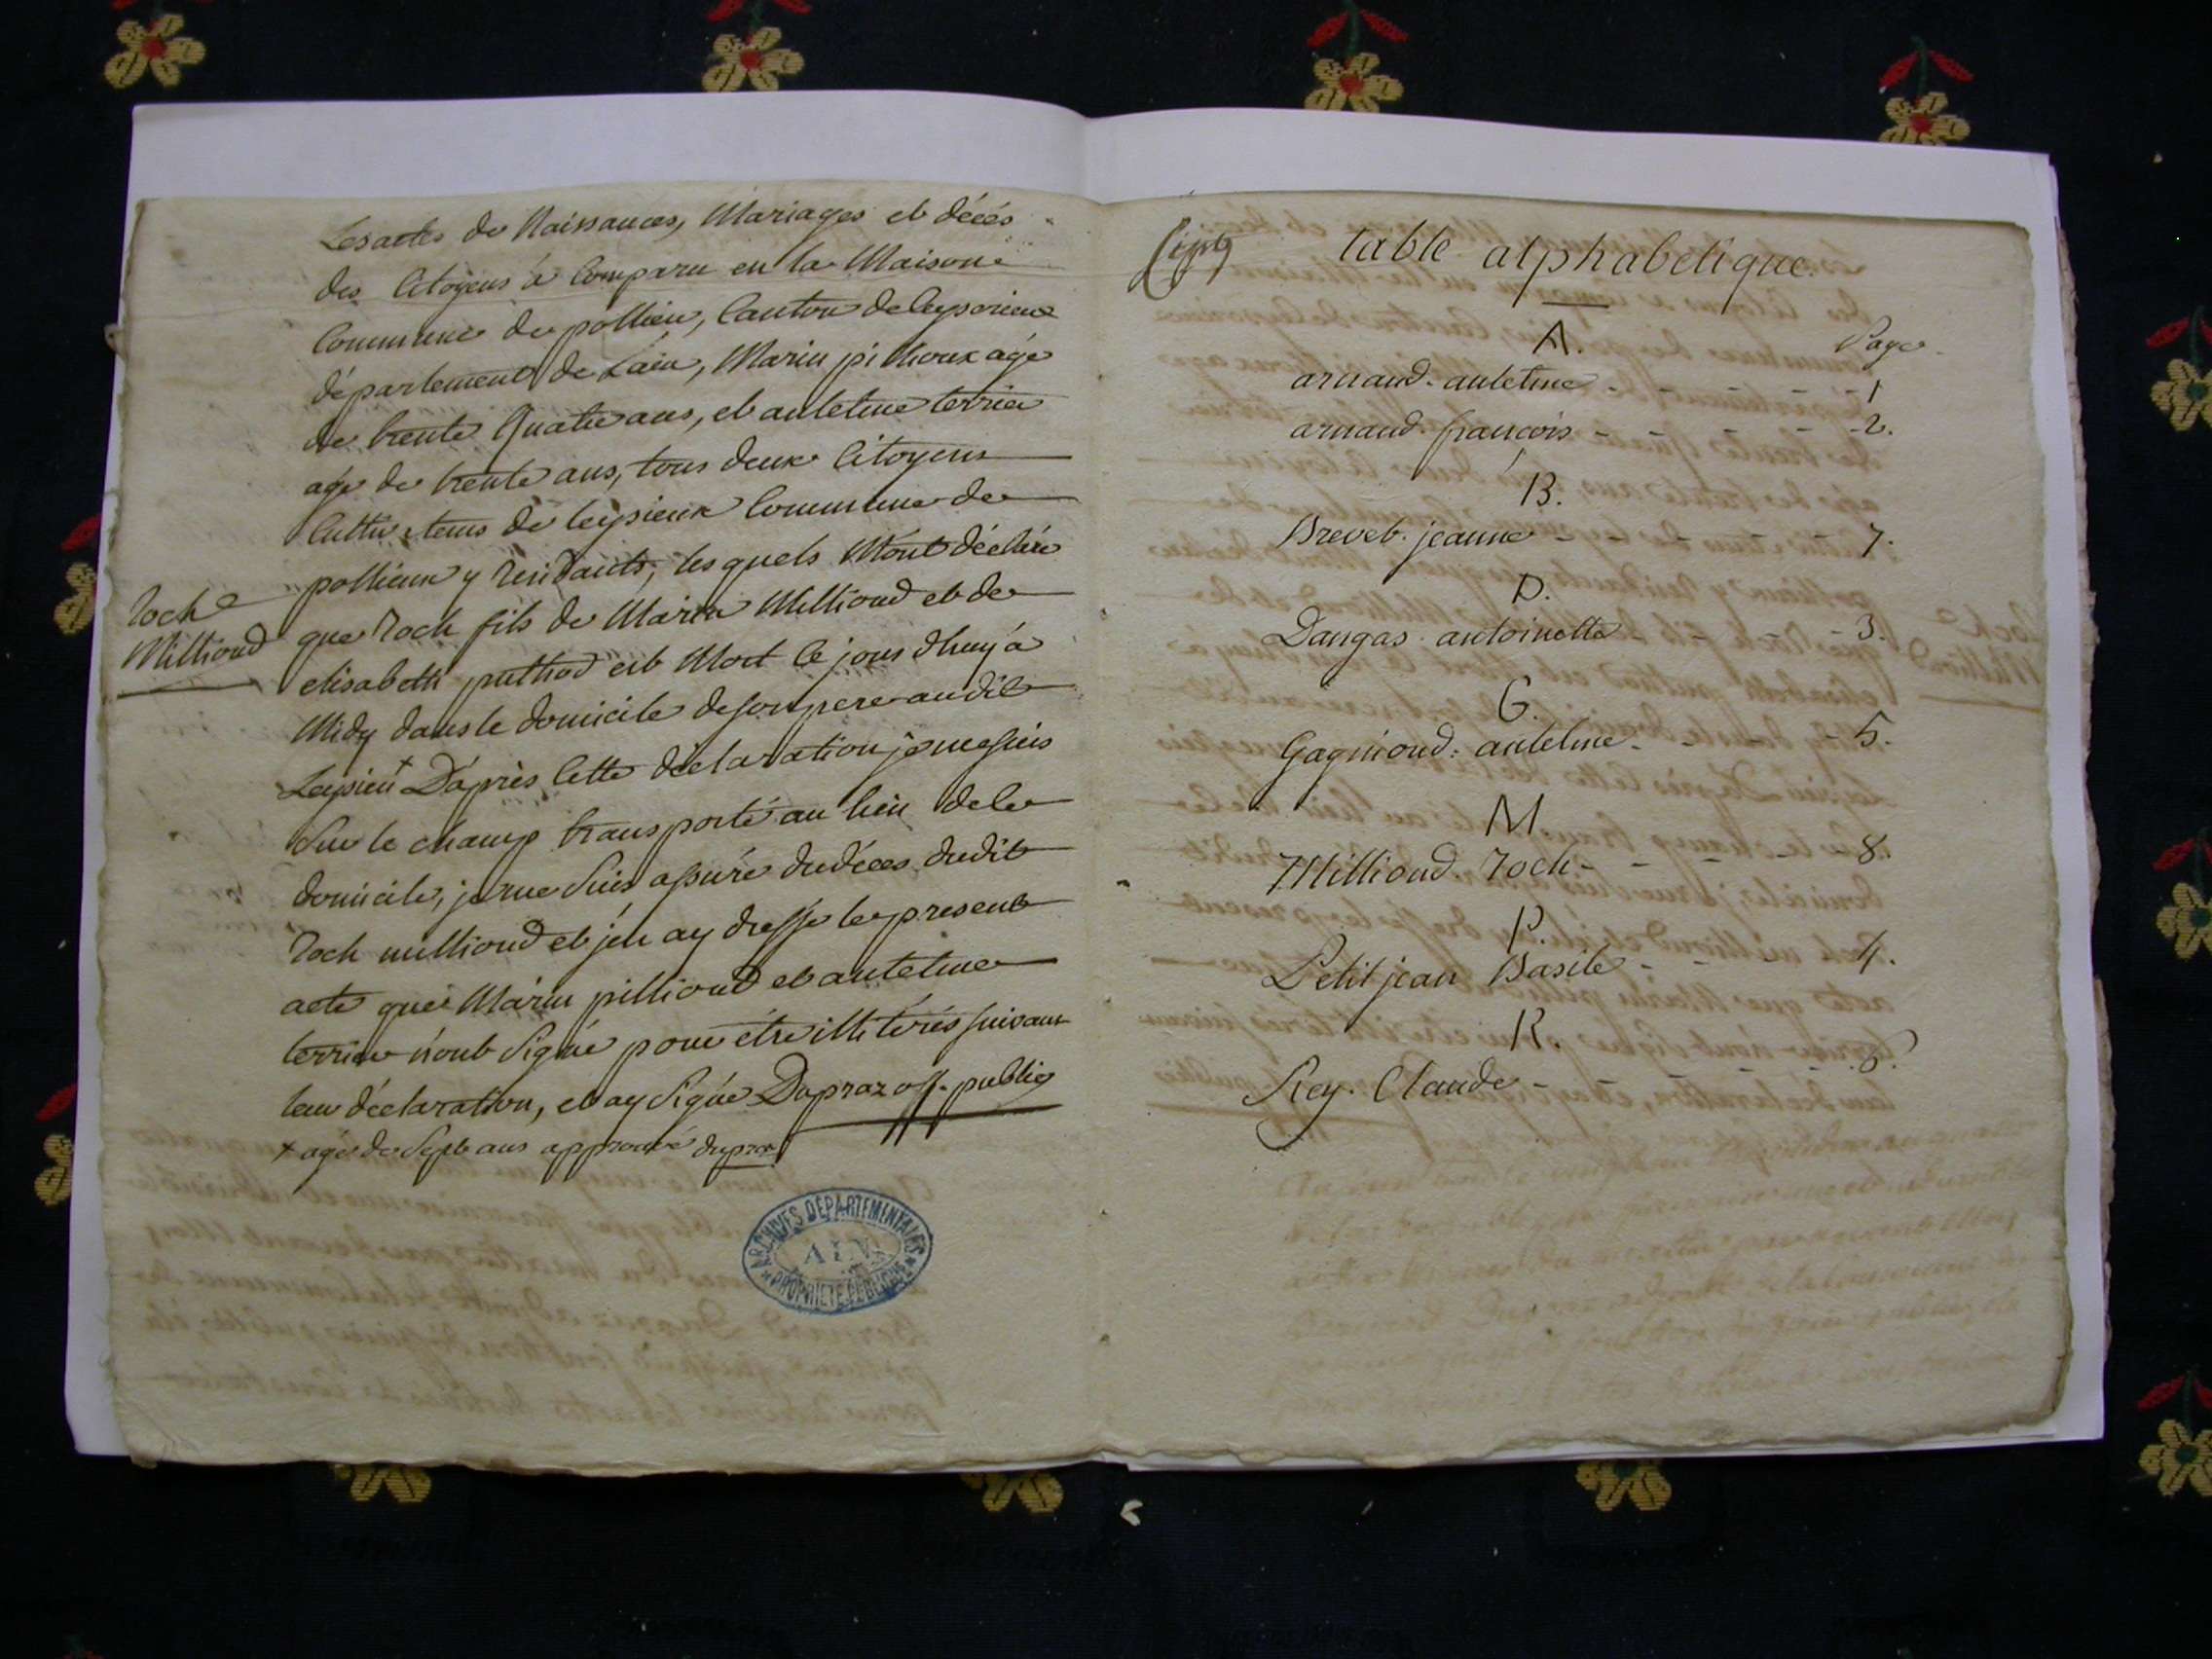 Les actes de Naissances, Mariages et décès
des Citoyens à Comparu en la Maison
Commune de pollieu, Canton de Ceyserieux
département de Lain, Marin pithioux agé
de trente Quatre ans, et antelme terrier
agé de trente ans, tous deux Citoyens
Cultivateurs de leysieux Commune de
pollieux y residants, lesquels M'ont déclaré
Roch
Millioud
que Roch fils de Marin Millioud et de
elisabeth puthod est Mort Ce jour d'huy à
Midy dans le domicile de son pere audit
Leysieu + D'après Cette déclaration je me suis
Sur le champ transporté au lieu de le
domicile, je me Suis assuré du déces dudit
Roch millioud et j'en ay dressé le present
acte que Marin pillioud et antelme
terrier n'ont Signé pour être illitérés suivant
leur déclaration, et ay Signé Dupraz off. public
+ agé de Sept ans approuvé dupraz
ARCHIVES DÉPARTEMENTALES
AIN
PROPRIÉTÉ PUBLIQUE
Cinq
table alphabetique.
A. Page
arnaud. antelme - - - - - 1
arnaud. francois - - - - - 2.
B.
Brevet. jeanne - - - - - 7.
D.
Dangas. antoinette - - - 3.
G.
Gagnioud. antelme - - - 5.
M
Millioud Roch - - - - - 8.
P.
Petit jean Basile - - - - 4.
R.
Rey. Claude - - - - - 6.